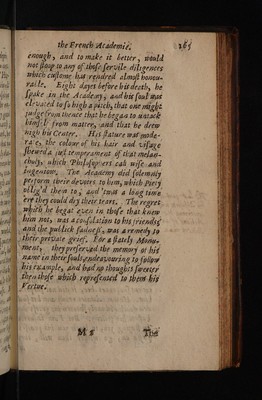 the French Academie. 165
enough, and to make it better, would
not stoop to any of those servile diligences
which custome hat rendred almost honou-
rable. Eight dayes before his death, he
spake in the Academy, and his soul was
elevated to so high a pitch, that one might
judge from thence that he began to unback
himself from matter, and that he drew
nigh his Creator. His stature was mode-
rate, the colour of his hair and visage
shewed a just temperament of that melan-
choly, which Philosophers call wise and
ingenious. The Academy did solemnly
perform their devoirs to him, which Piety
oblig'd them to, and 'twas a long time
ere they could dry their tears. The regret
which he begat even in those that knew
him not, was a consolation to his friends,
and the publick sadness, was a remedy to
their private grief. For a stately Monu-
ment, they preserved the memory of his
name in their souls, endeavouring to follow
his example, and had no thoughts sweeter
then those which represented to them his
Vertue.
M 3 The